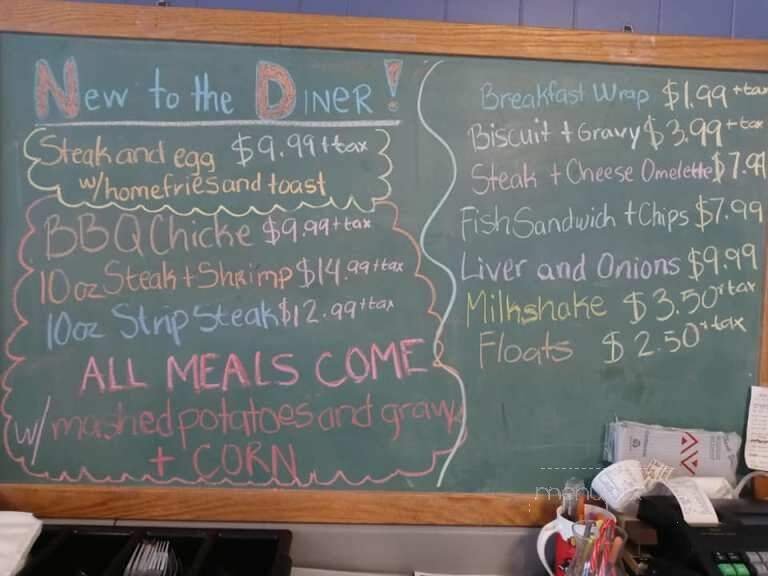 New to the Diner!
Steak and egg $9.99+tax
w/homefries and toast
BBQ Chicke $9.99+tax
10oz Steak + Shrimp $14.99+tax
10oz Strip Steak $12.99+tax
ALL MEALS COME
w/ mashed potatoes and gravy
+ CORN
Breakfast Wrap $1.99+tax
Biscuit + Gravy $3.99+tax
Steak + Cheese Omelette $7.99
Fish Sandwich + Chips $7.99
Liver and Onions $9.99
Milkshake $3.50+tax
Floats $2.50+tax